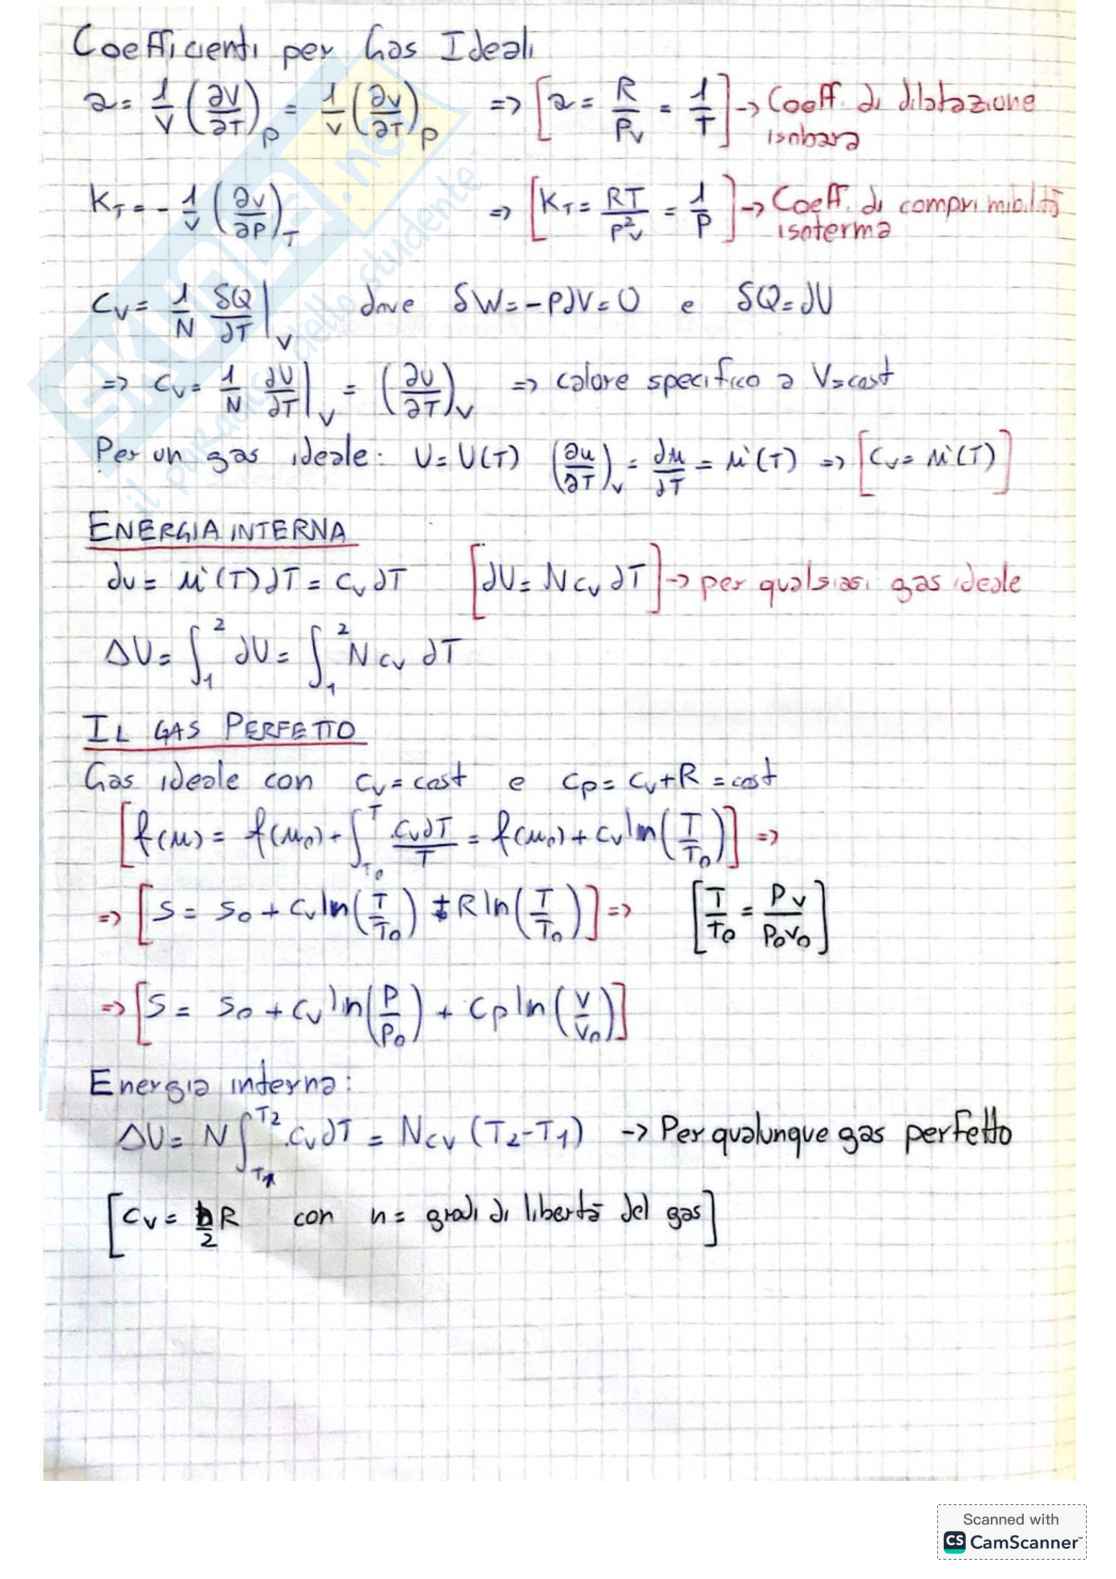 Coefficienti per Gas Ideali
a = 1/V (∂V/∂T)_P = 1/v (∂v/∂T)_P => [a = R/Pv = 1/T] -> Coeff. di dilatazione isobara
K_T = - 1/v (∂v/∂P)_T => [K_T = RT/P²v = 1/P] -> Coeff. di comprimibilità isoterma
c_v = 1/N δQ/dT |_V dove δW = -PdV = 0 e δQ = dU
=> c_v = 1/N dU/dT |_V = (∂u/∂T)_V => calore specifico a V=cost
Per un gas ideale: U = U(T) (∂u/∂T)_v = du/dT = u'(T) => [c_v = u'(T)]
ENERGIA INTERNA
du = u'(T)dT = c_v dT [dU = N c_v dT] -> per qualsiasi gas ideale
ΔU = ∫_1^2 dU = ∫_1^2 N c_v dT
IL GAS PERFETTO
Gas ideale con c_v = cost e c_p = c_v + R = cost
[f(u) = f(u_0) + ∫_{T_0}^T c_v dT/T = f(u_0) + c_v ln(T/T_0)] =>
=> [s = s_0 + c_v ln(T/T_0) + R ln(T/T_0)] => [T/T_0 = Pv/P_0v_0]
=> [s = s_0 + c_v ln(P/P_0) + c_p ln(v/v_0)]
Energia interna:
ΔU = N ∫_{T_1}^{T_2} c_v dT = N c_v (T_2 - T_1) -> Per qualunque gas perfetto
[c_v = n/2 R con n = gradi di libertà del gas]
SKUOLA.net
il paradiso dello studente
Scanned with
CS CamScanner